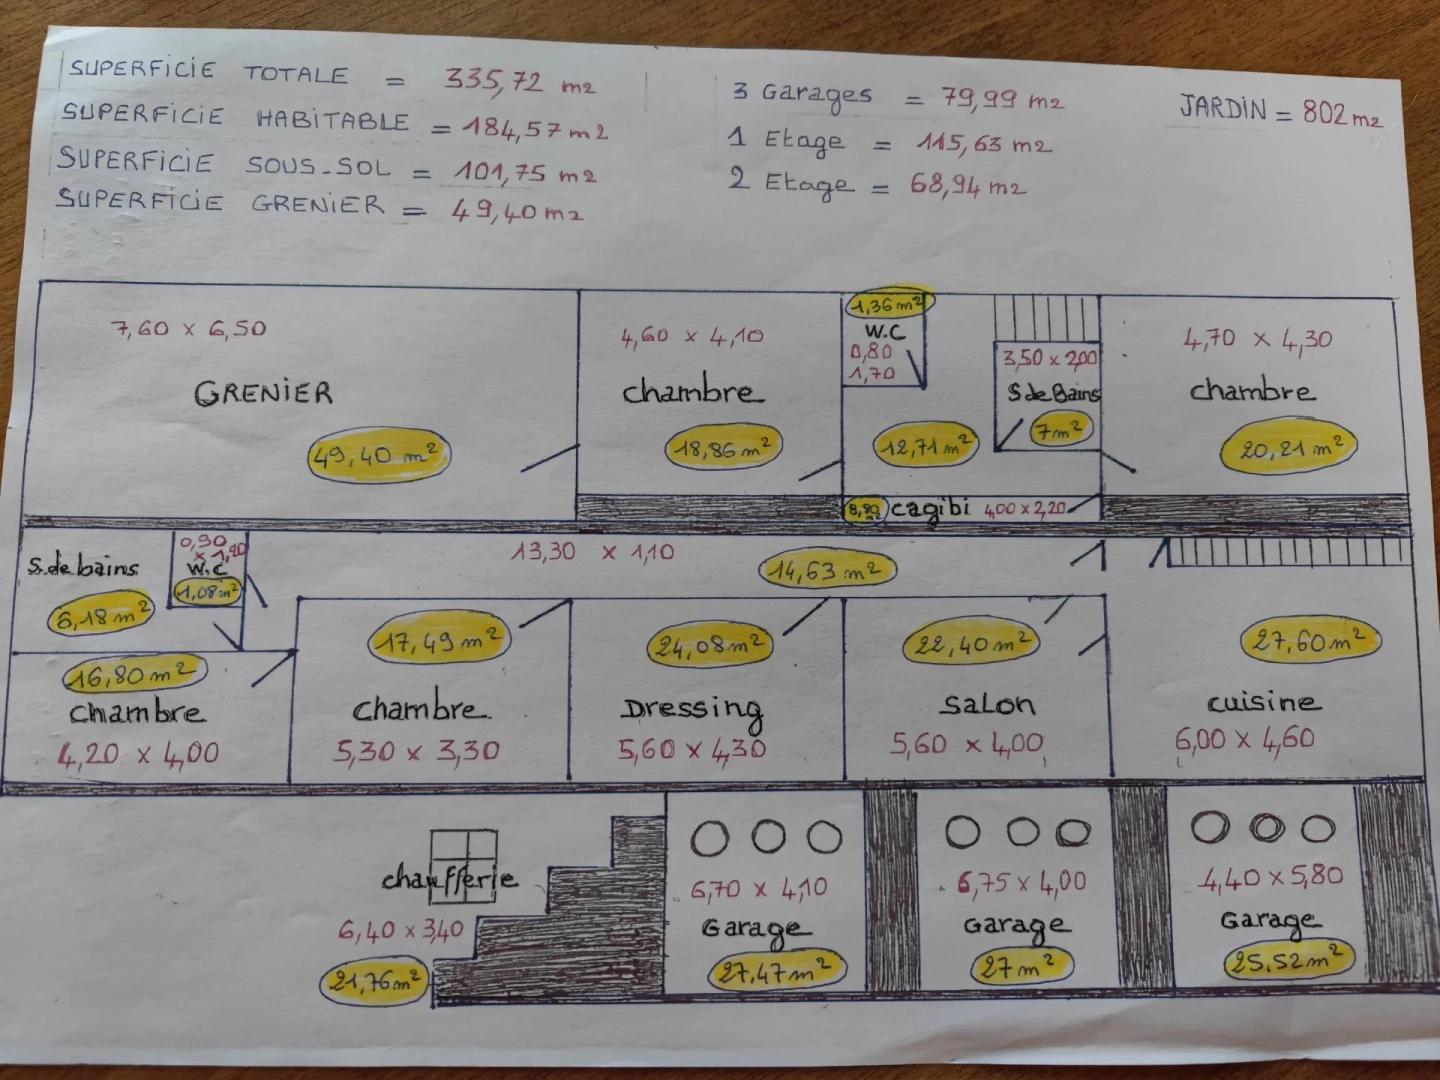 SUPERFICIE TOTALE = 335,72 m2
SUPERFICIE HABITABLE = 184,57 m2
SUPERFICIE SOUS-SOL = 101,75 m2
SUPERFICIE GRENIER = 49,40 m2
3 Garages = 79,99 m2
1 Etage = 115,63 m2
2 Etage = 68,94 m2
JARDIN = 802 m2
7,60 x 6,50
GRENIER
49,40 m²
4,60 x 4,10
chambre
18,86 m²
1,36 m²
W.C
0,80
1,70
12,71 m²
3,50 x 2,00
S de Bains
7 m²
4,70 x 4,30
chambre
20,21 m²
8,80 cagibi 4,00 x 2,20
S. de bains
6,18 m²
0,90
x 1,20
W.C
1,08 m²
13,30 x 1,10
14,63 m²
16,80 m²
chambre
4,20 x 4,00
17,49 m²
chambre
5,30 x 3,30
24,08 m²
Dressing
5,60 x 4,30
22,40 m²
SaLon
5,60 x 4,00
27,60 m²
cuisine
6,00 x 4,60
chaufferie
6,40 x 3,40
21,76 m²
6,70 x 4,10
Garage
27,47 m²
6,75 x 4,00
Garage
27 m²
4,40 x 5,80
Garage
25,52 m²